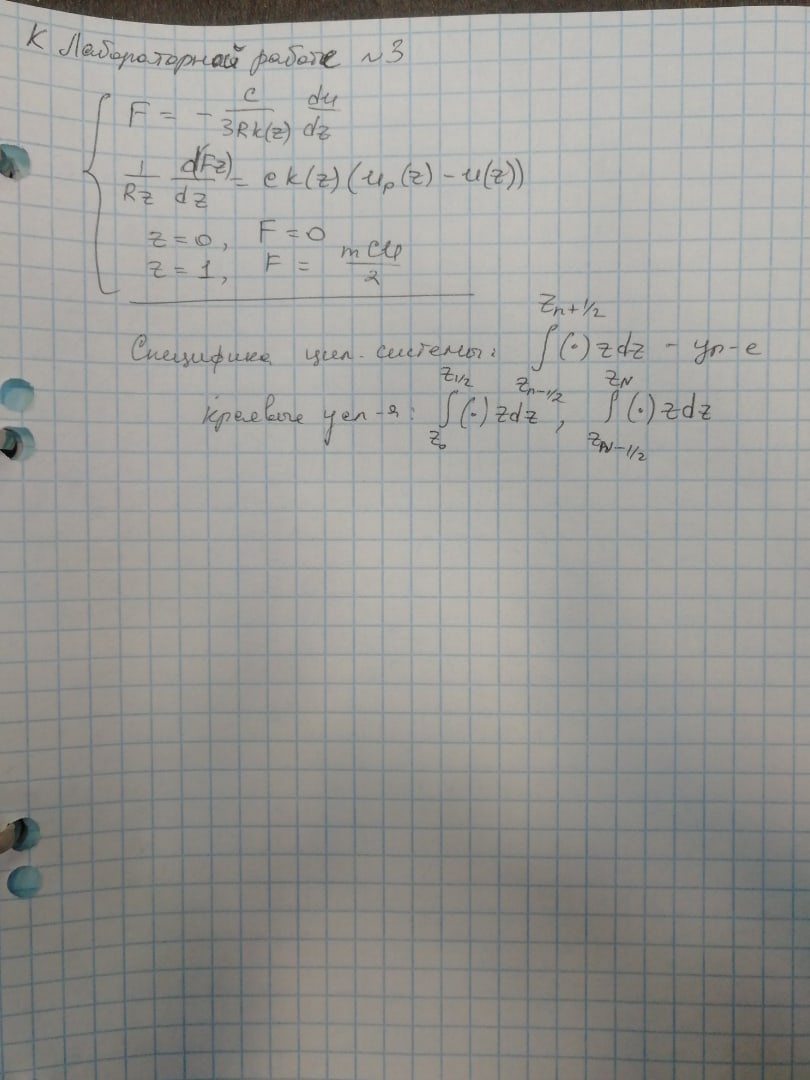 К Лабораторной работе №3
F = - c/(3Rk(z)) du/dz
1/(Rz) d(Fz)/dz = ck(z)(u_p(z) - u(z))
z = 0, F = 0
z = 1, F = mcu/2
Специфика цил. системы: ∫_{z_{n-1/2}}^{z_{n+1/2}} (·) z dz - ур-е
краевые усл-я: ∫_{z_0}^{z_{1/2}} (·) z dz, ∫_{z_{N-1/2}}^{z_N} (·) z dz